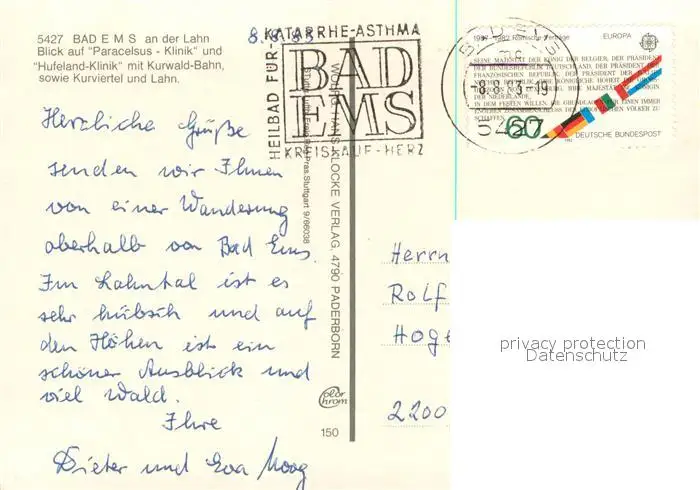 5427 BAD EMS an der Lahn
Blick auf "Paracelsus - Klinik" und
"Hufeland-Klinik" mit Kurwald-Bahn,
sowie Kurviertel und Lahn.
8.8.83
HEILBAD FÜR-
KATARRHE-ASTHMA
BAD
EMS
KREISLAUF-HERZ
-8.8.83-19
5427
1957-1982 Römische Verträge
EUROPA
SEINE MAJESTÄT DER KÖNIG DER BELGIER, DER PRÄSIDENT
DER BUNDESREPUBLIK DEUTSCHLAND, DER PRÄSIDENT DER
FRANZÖSISCHEN REPUBLIK, DER PRÄSIDENT DER
MAJESTÄT
DER NIEDERLANDE,
IN DEM FESTEN WILLEN, DIE GRUNDLAGEN EINEN IMMER
VÖLKER ZU
SCHAFFEN
60
1982
DEUTSCHE BUNDESPOST
Herzliche Grüße
senden wir Ihnen
von einer Wanderung
oberhalb von Bad Ems.
Im Lahntal ist es
sehr hübsch und auf
den Höhen ist ein
schöner Ausblick und
viel Wald.
Ihre
Dieter und Eva Moog
KLOCKE VERLAG, 4790 PADERBORN
Stuttgart 9/66038
color
chrom
150
Herrn
Rolf
Hoge
2200
privacy protection
Datenschutz